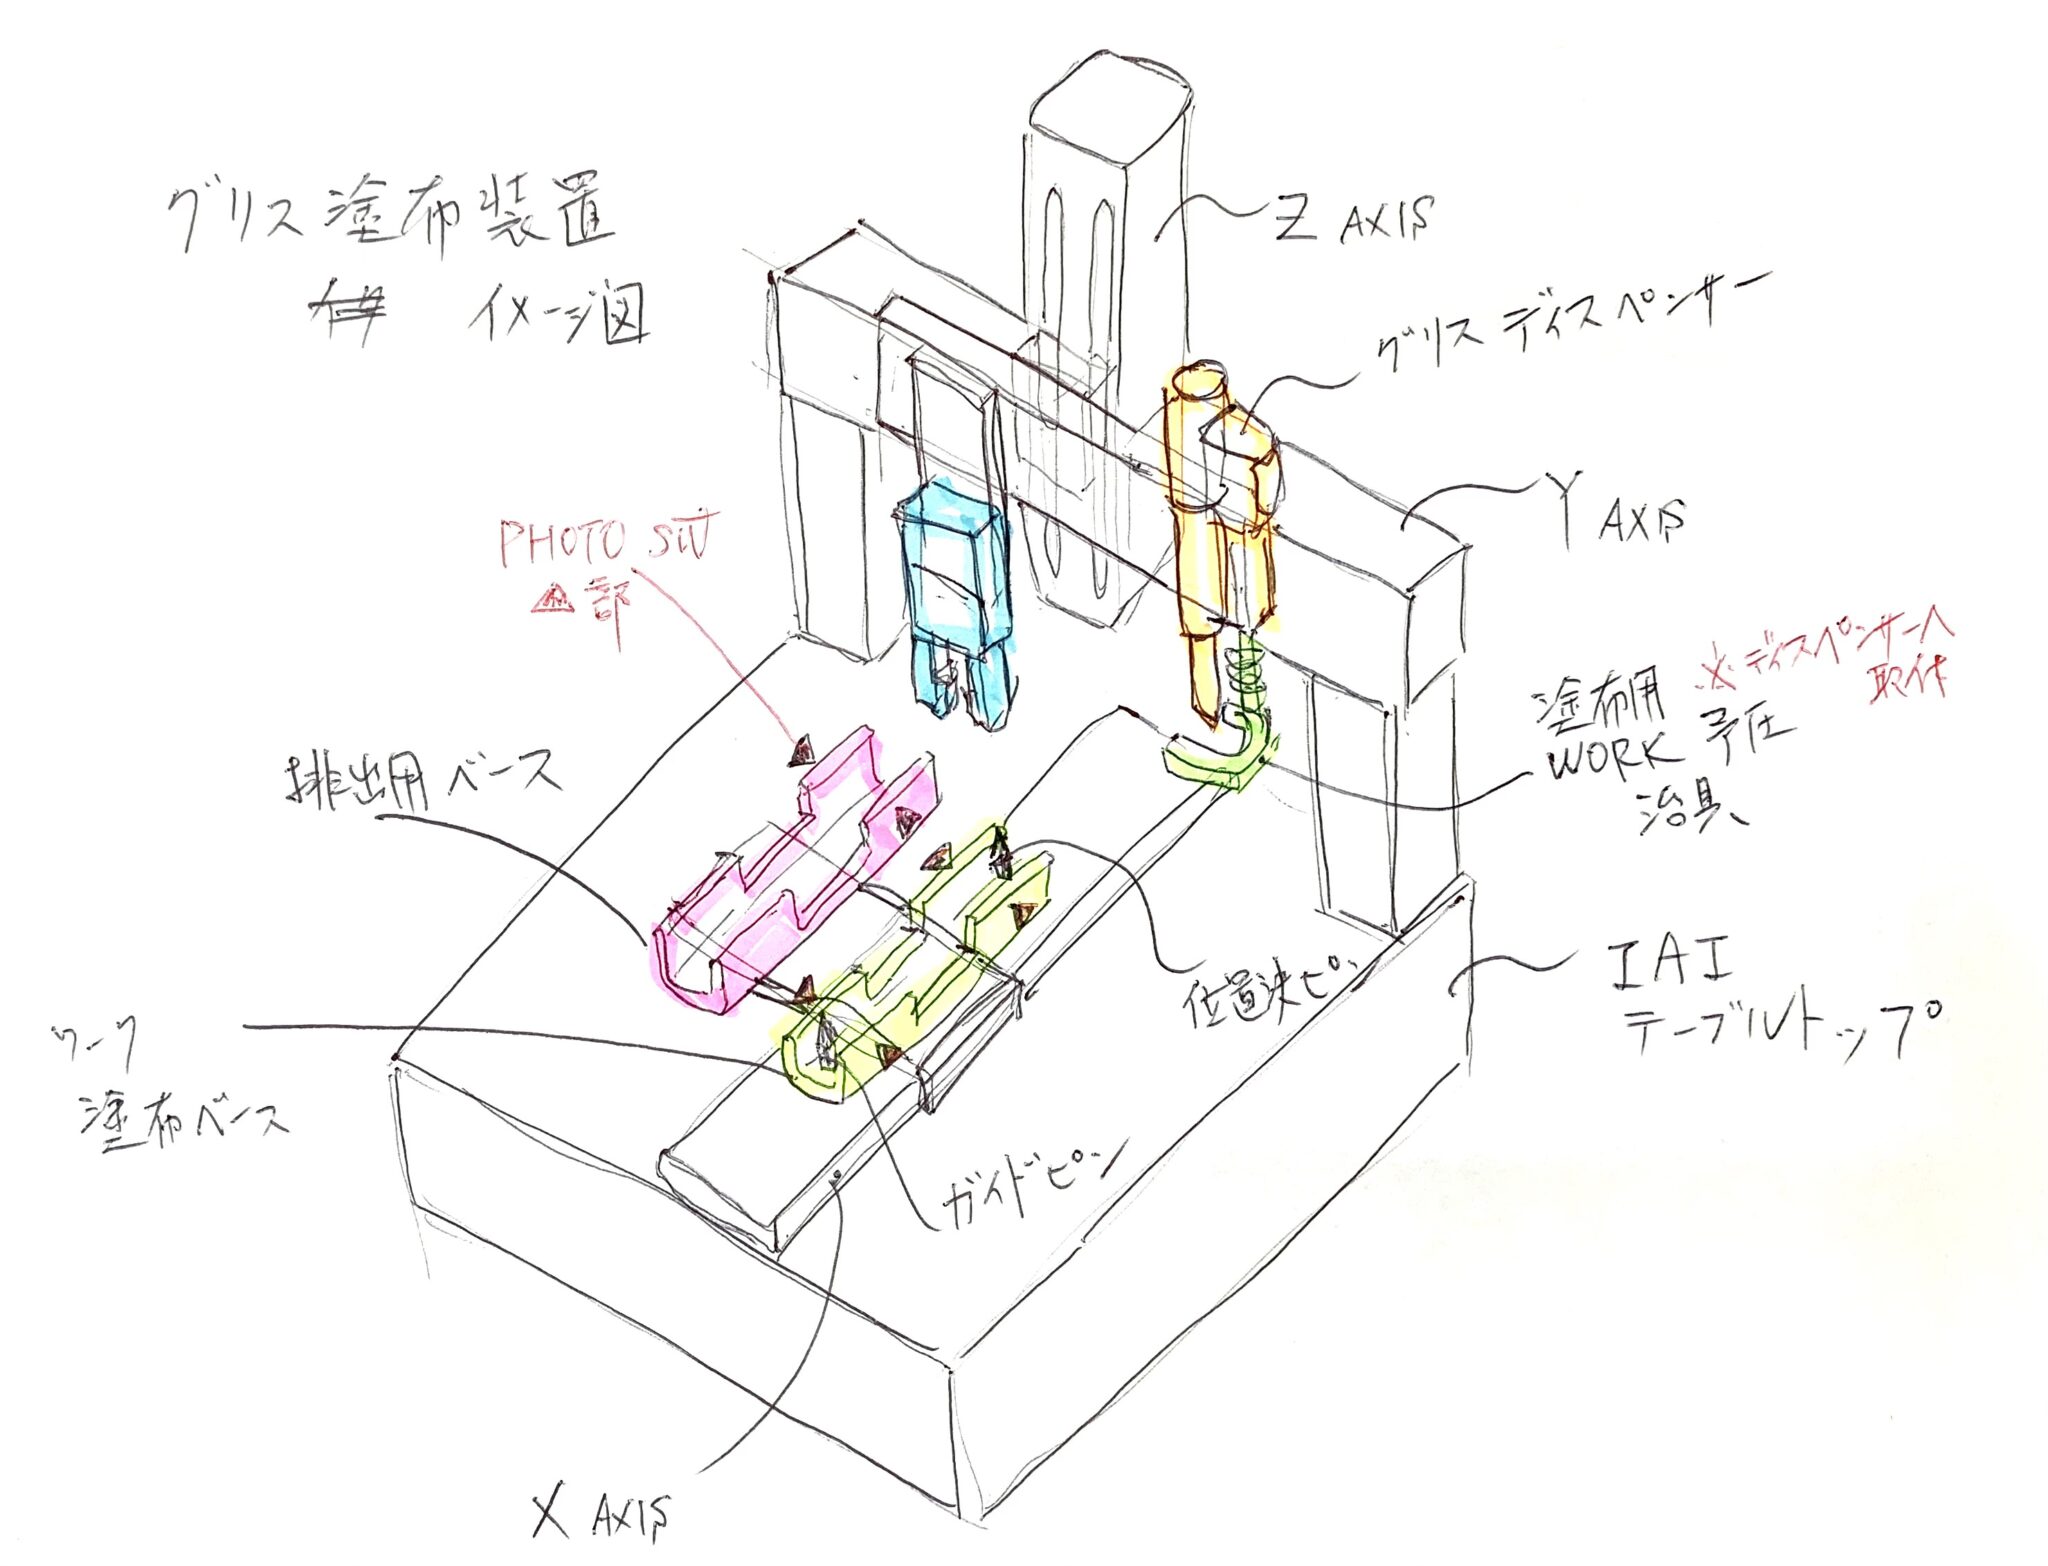 グリス塗布装置
イメージ図
Z AXIS
グリスディスペンサー
Y AXIS
PHOTO SW
▲部
※ディスペンサーへ
取付
塗布用
WORK 予圧
治具
排出用ベース
位置決ピン
IAI
テーブルトップ
ワーク
塗布ベース
ガイドピン
X AXIS